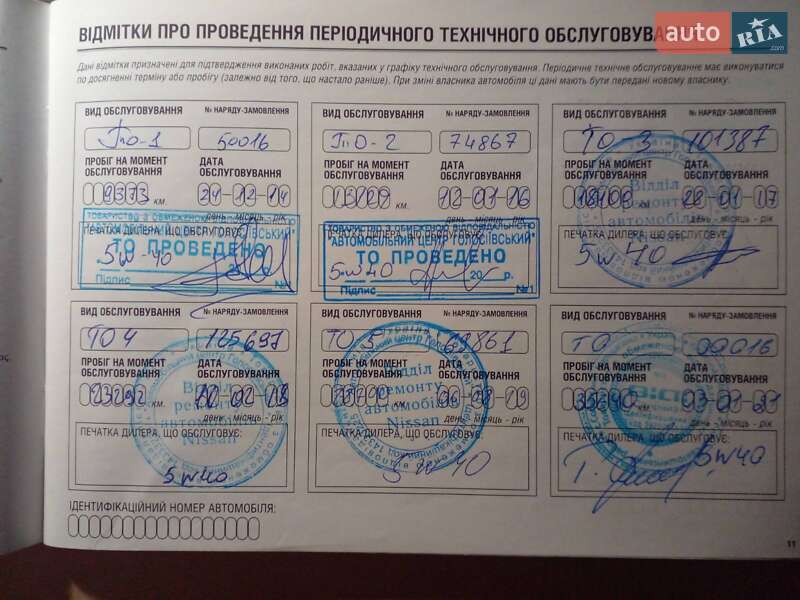 ВІДМІТКИ ПРО ПРОВЕДЕННЯ ПЕРІОДИЧНОГО ТЕХНІЧНОГО ОБСЛУГОВУВА
auto RIA.com
Дані відмітки призначені для підтвердження виконаних робіт, вказаних у графіку технічного обслуговування. Періодичне технічне обслуговування має виконуватися
по досягненні терміну або пробігу (залежно від того, що настало раніше). При зміні власника автомобіля ці дані мають бути передані новому власнику.
ВИД ОБСЛУГОВУВАННЯ № НАРЯДУ-ЗАМОВЛЕННЯ
ПО-1 50016
ПРОБІГ НА МОМЕНТ ОБСЛУГОВУВАННЯ: ДАТА ОБСЛУГОВУВАННЯ:
9373 км. 24-12-14
день - місяць - рік
ПЕЧАТКА ДИЛЕРА, ЩО ОБСЛУГОВУЄ:
ТО ПРОВЕДЕНО
5w-40
Підпис №1
ВИД ОБСЛУГОВУВАННЯ № НАРЯДУ-ЗАМОВЛЕННЯ
ПО-2 74867
ПРОБІГ НА МОМЕНТ ОБСЛУГОВУВАННЯ: ДАТА ОБСЛУГОВУВАННЯ:
км. 12-01-16
день - місяць - рік
ТОВАРИСТВО З ОБМЕЖЕНОЮ ВІДПОВІДАЛЬНІСТЮ
"АВТОМОБІЛЬНИЙ ЦЕНТР ГОЛОСІЇВСЬКИЙ"
ТО ПРОВЕДЕНО
5w40 20 р.
Підпис №1
ВИД ОБСЛУГОВУВАННЯ № НАРЯДУ-ЗАМОВЛЕННЯ
ТО 3 101387
ПРОБІГ НА МОМЕНТ ОБСЛУГОВУВАННЯ: ДАТА ОБСЛУГОВУВАННЯ:
км. 01-17
день - місяць - рік
Відділ
ремонту
автомобілів
Nissan
ПЕЧАТКА ДИЛЕРА, ЩО ОБСЛУГОВУЄ:
5w40
ВИД ОБСЛУГОВУВАННЯ № НАРЯДУ-ЗАМОВЛЕННЯ
ТО 4 125697
ПРОБІГ НА МОМЕНТ ОБСЛУГОВУВАННЯ: ДАТА ОБСЛУГОВУВАННЯ:
23292 км. 02-18
день - місяць - рік
Відділ
ремонту
автомобілів
Nissan
ПЕЧАТКА ДИЛЕРА, ЩО ОБСЛУГОВУЄ:
5w40
ВИД ОБСЛУГОВУВАННЯ № НАРЯДУ-ЗАМОВЛЕННЯ
ТО-5 69861
ПРОБІГ НА МОМЕНТ ОБСЛУГОВУВАННЯ: ДАТА ОБСЛУГОВУВАННЯ:
км. 19
день - місяць - рік
Відділ
ремонту
автомобілів
Nissan
ПЕЧАТКА ДИЛЕРА, ЩО ОБСЛУГОВУЄ:
5w40
ВИД ОБСЛУГОВУВАННЯ № НАРЯДУ-ЗАМОВЛЕННЯ
ТО 00016
ПРОБІГ НА МОМЕНТ ОБСЛУГОВУВАННЯ: ДАТА ОБСЛУГОВУВАННЯ:
35240 км. 21
день - місяць - рік
ПЕЧАТКА ДИЛЕРА, ЩО ОБСЛУГОВУЄ:
5w40
ІДЕНТИФІКАЦІЙНИЙ НОМЕР АВТОМОБІЛЯ:
11